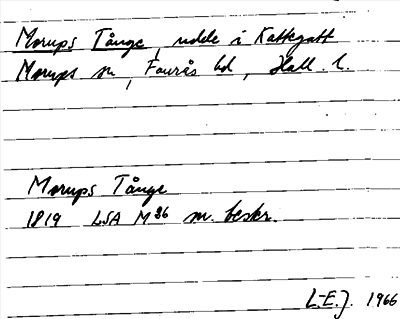 Morups Tånge, udde i Kattegatt
Morups sn, Faurås hd, Hall. l.
Morups Tånge
1819 LSA M36 m. beskr.
L-E.J. 1966